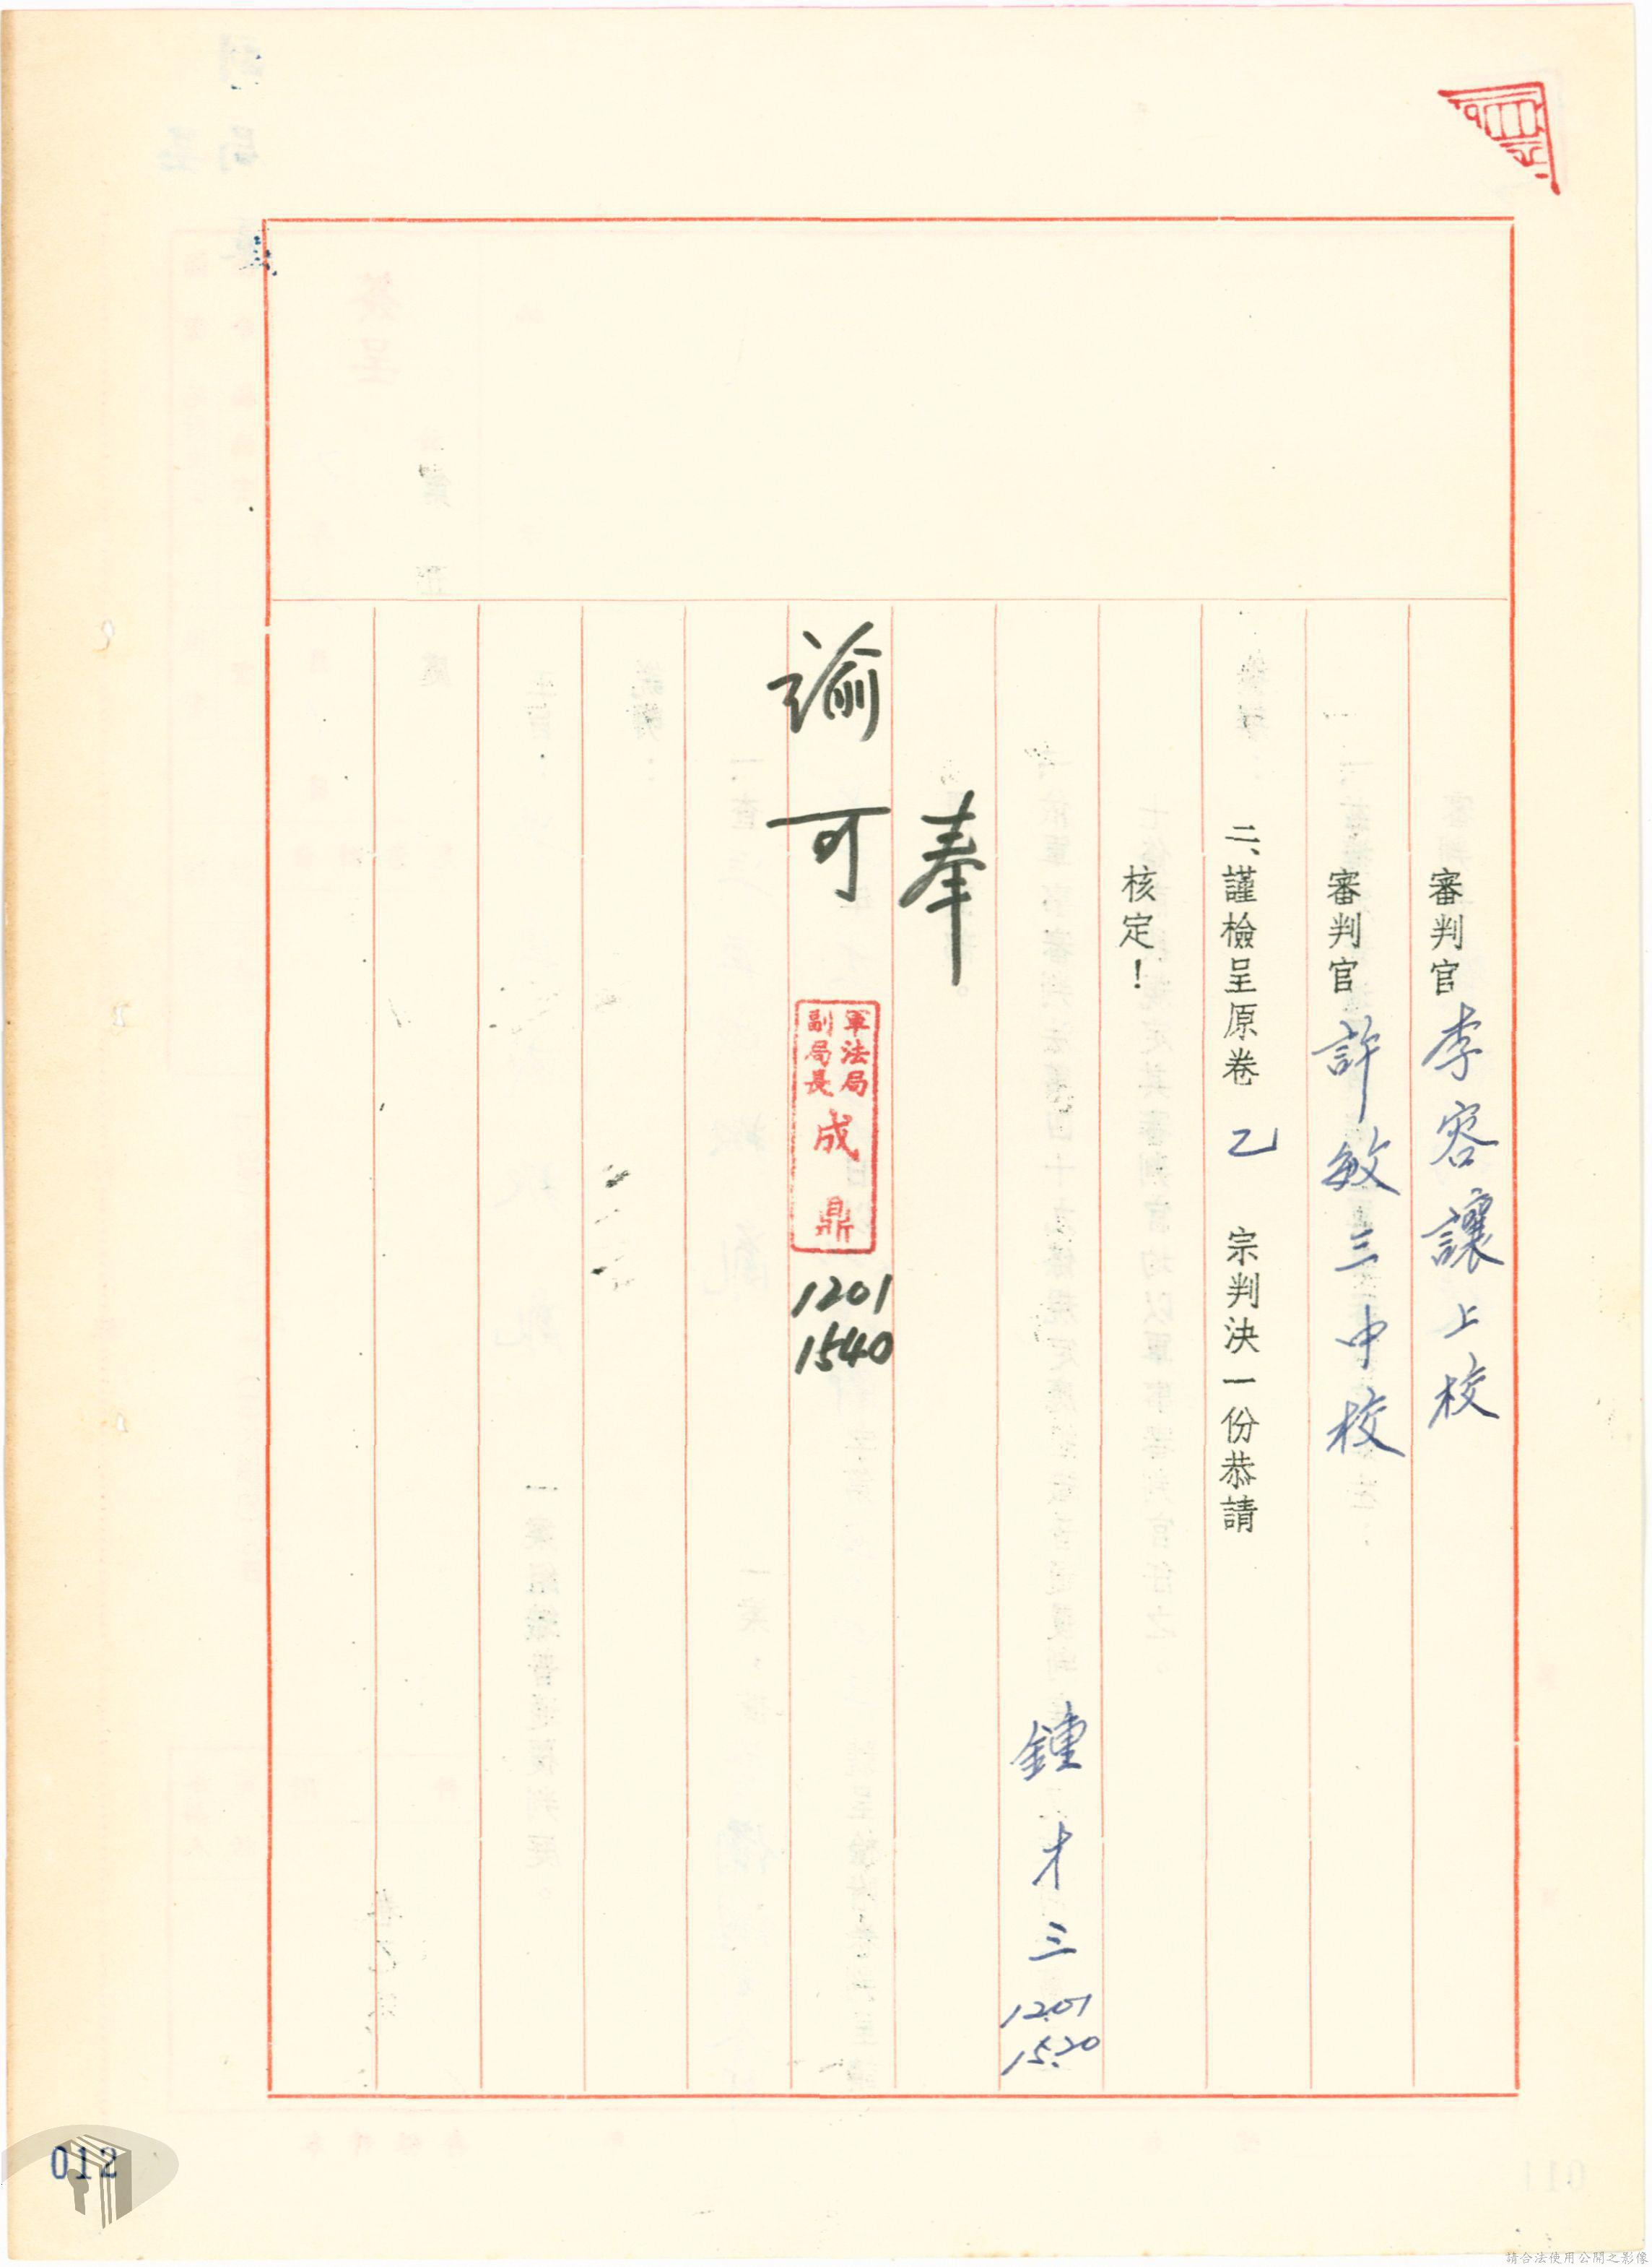 審判官李容讓上校
審判官許敏三中校
二、謹檢呈原卷乙宗判決一份恭請
核定!
鍾才三
1201
1520
奉
諭可
軍法局
副局長
成鼎
1201
1540
012
請合法使用公開之影像